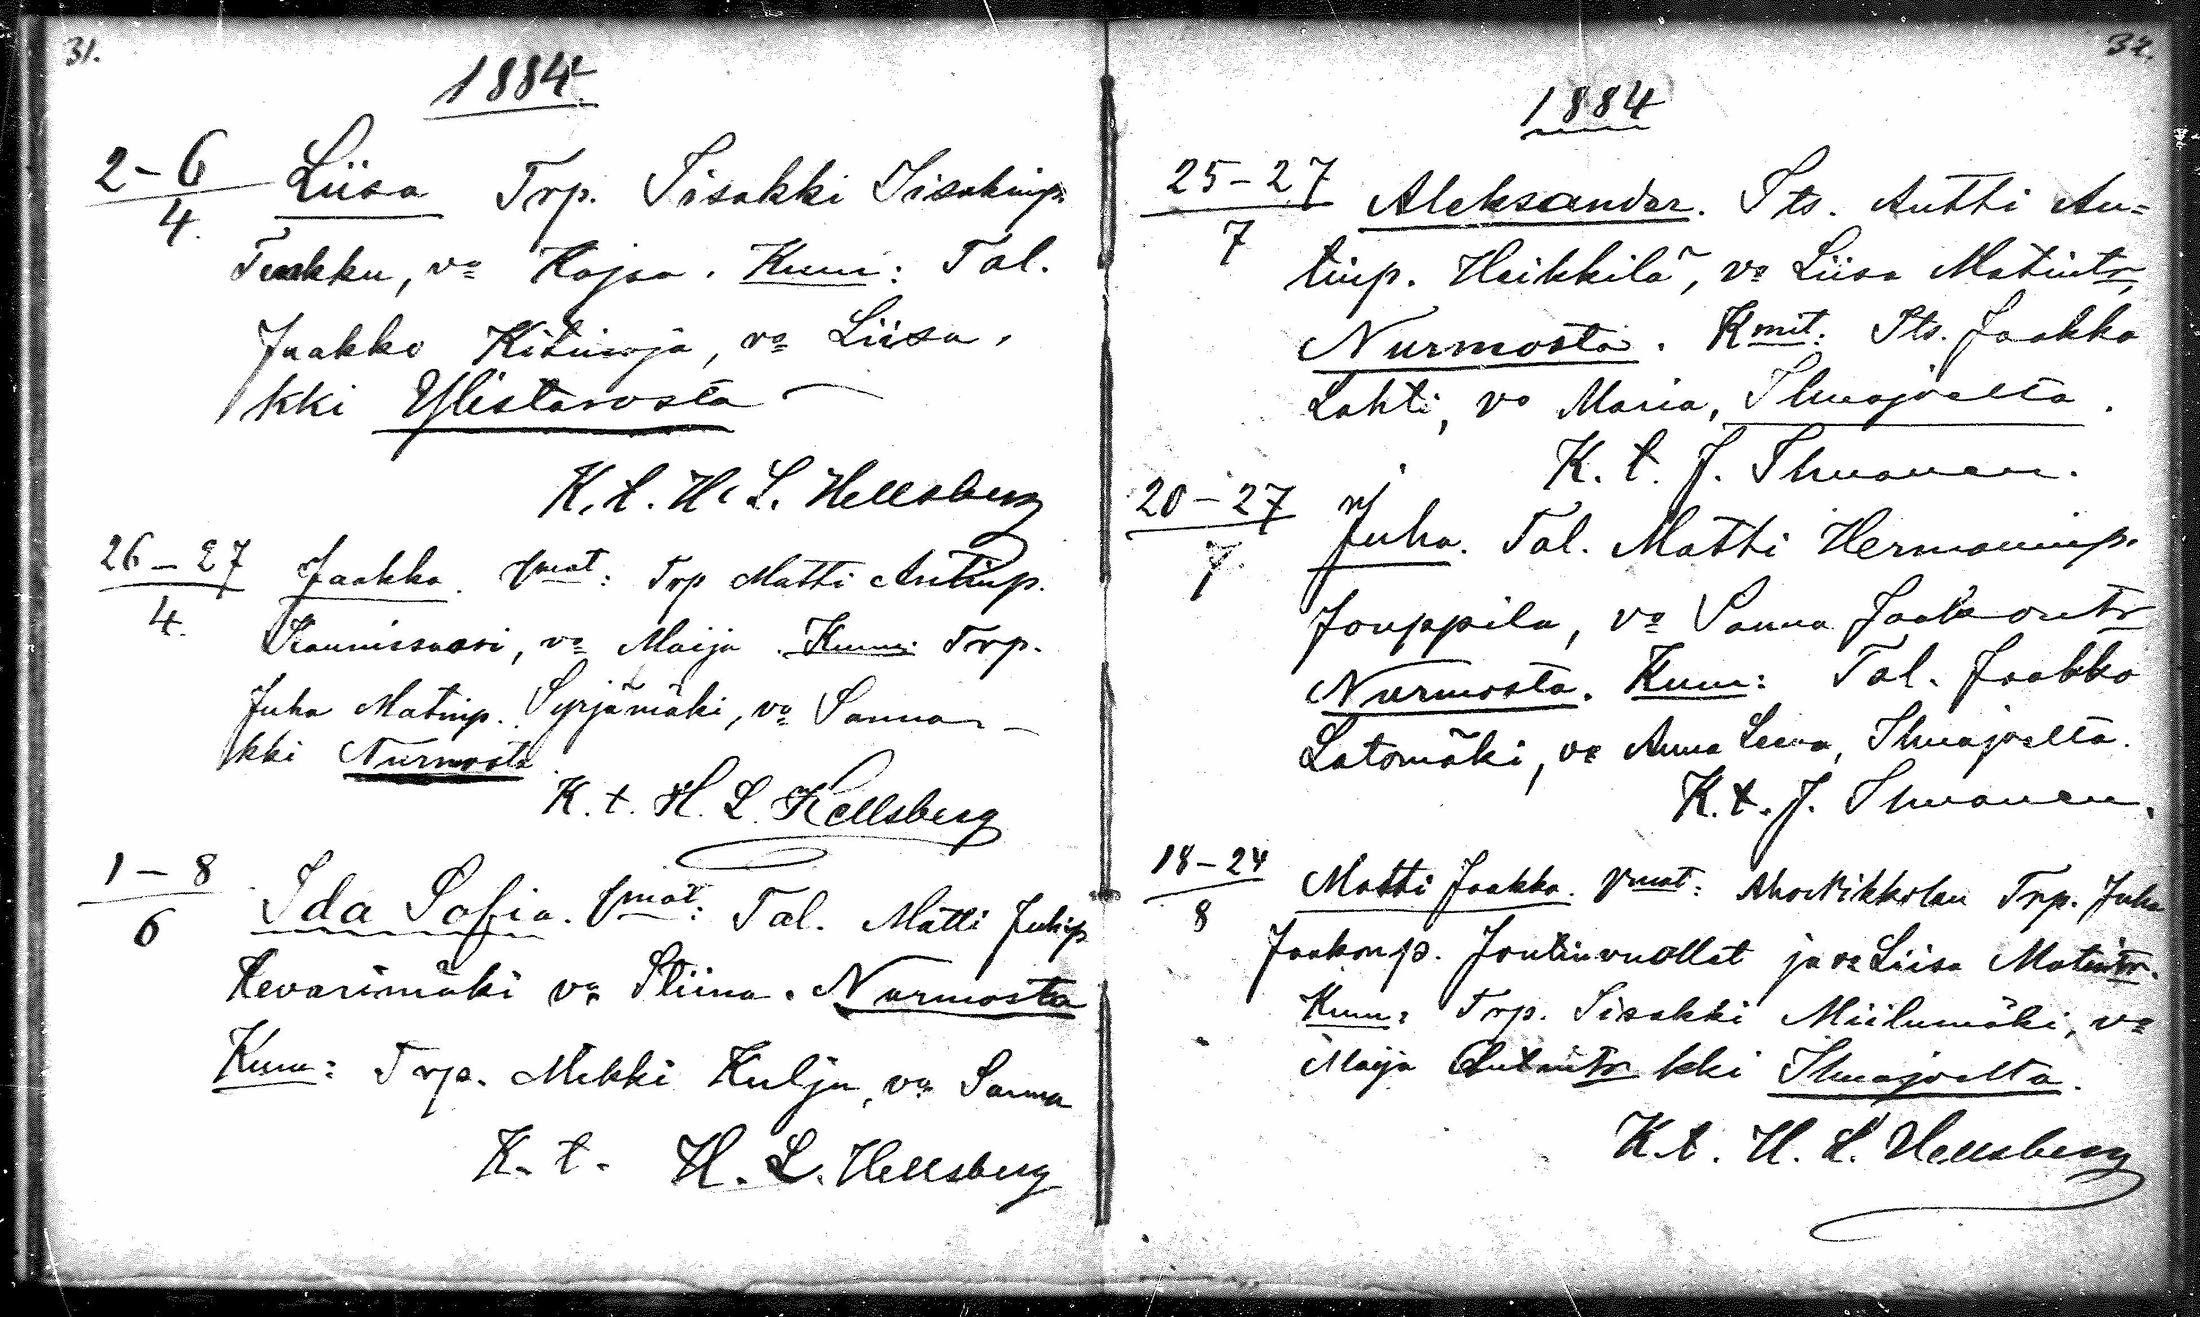 31.
1884
2-6/4. Liisa Trp. Iisakki Iisakinp.
Tuckku, va Kajsa. Kum: Tal.
Jaakko Kitinoja, va Liisa,
kki Ylistarosta
K. t. H. L. Hellsberg
26-27/4. Jaakko. Vmat: Trp Matti Antinp.
Kaunissaari, va Maija. Kum: Trp.
Juha Matinp. Syrjämäki, va Sanna
kki Nurmosta
K. t. H. L. Hellsberg
1-8/6 Ida Sofia. Vmat: Tal. Matti Juhinp
Kevarimäki va Stiina. Nurmosta
Kum: Trp. Mikki Kulju, va Sanna
K. t. H. L. Hellsberg
32.
1884
25-27/7 Aleksander. Its. Antti An=
tinp. Heikkilä, va Liisa Matintr,
Nurmosta. Kmit: Its. Jaakko
Lahti, va Maria, Ilmajoelta.
K. t. J. Ilmonen.
20-27/7. Juha. Tal. Matti Hermanninp.
Jouppila, va Sanna Jaakontr
Nurmosta. Kum: Tal. Jaakko
Latomäki, va Anna Leena, Ilmajoelta.
K. t. J. Ilmonen.
18-24/8 Matti Jaakko. Vmat: Trp. Juha
Jaakonp. ja va Liisa Matintr.
Kum: Trp. Iisakki Miilumäki, va
Maija Antintr kki Ilmajoelta.
K. t. H. L. Hellsberg